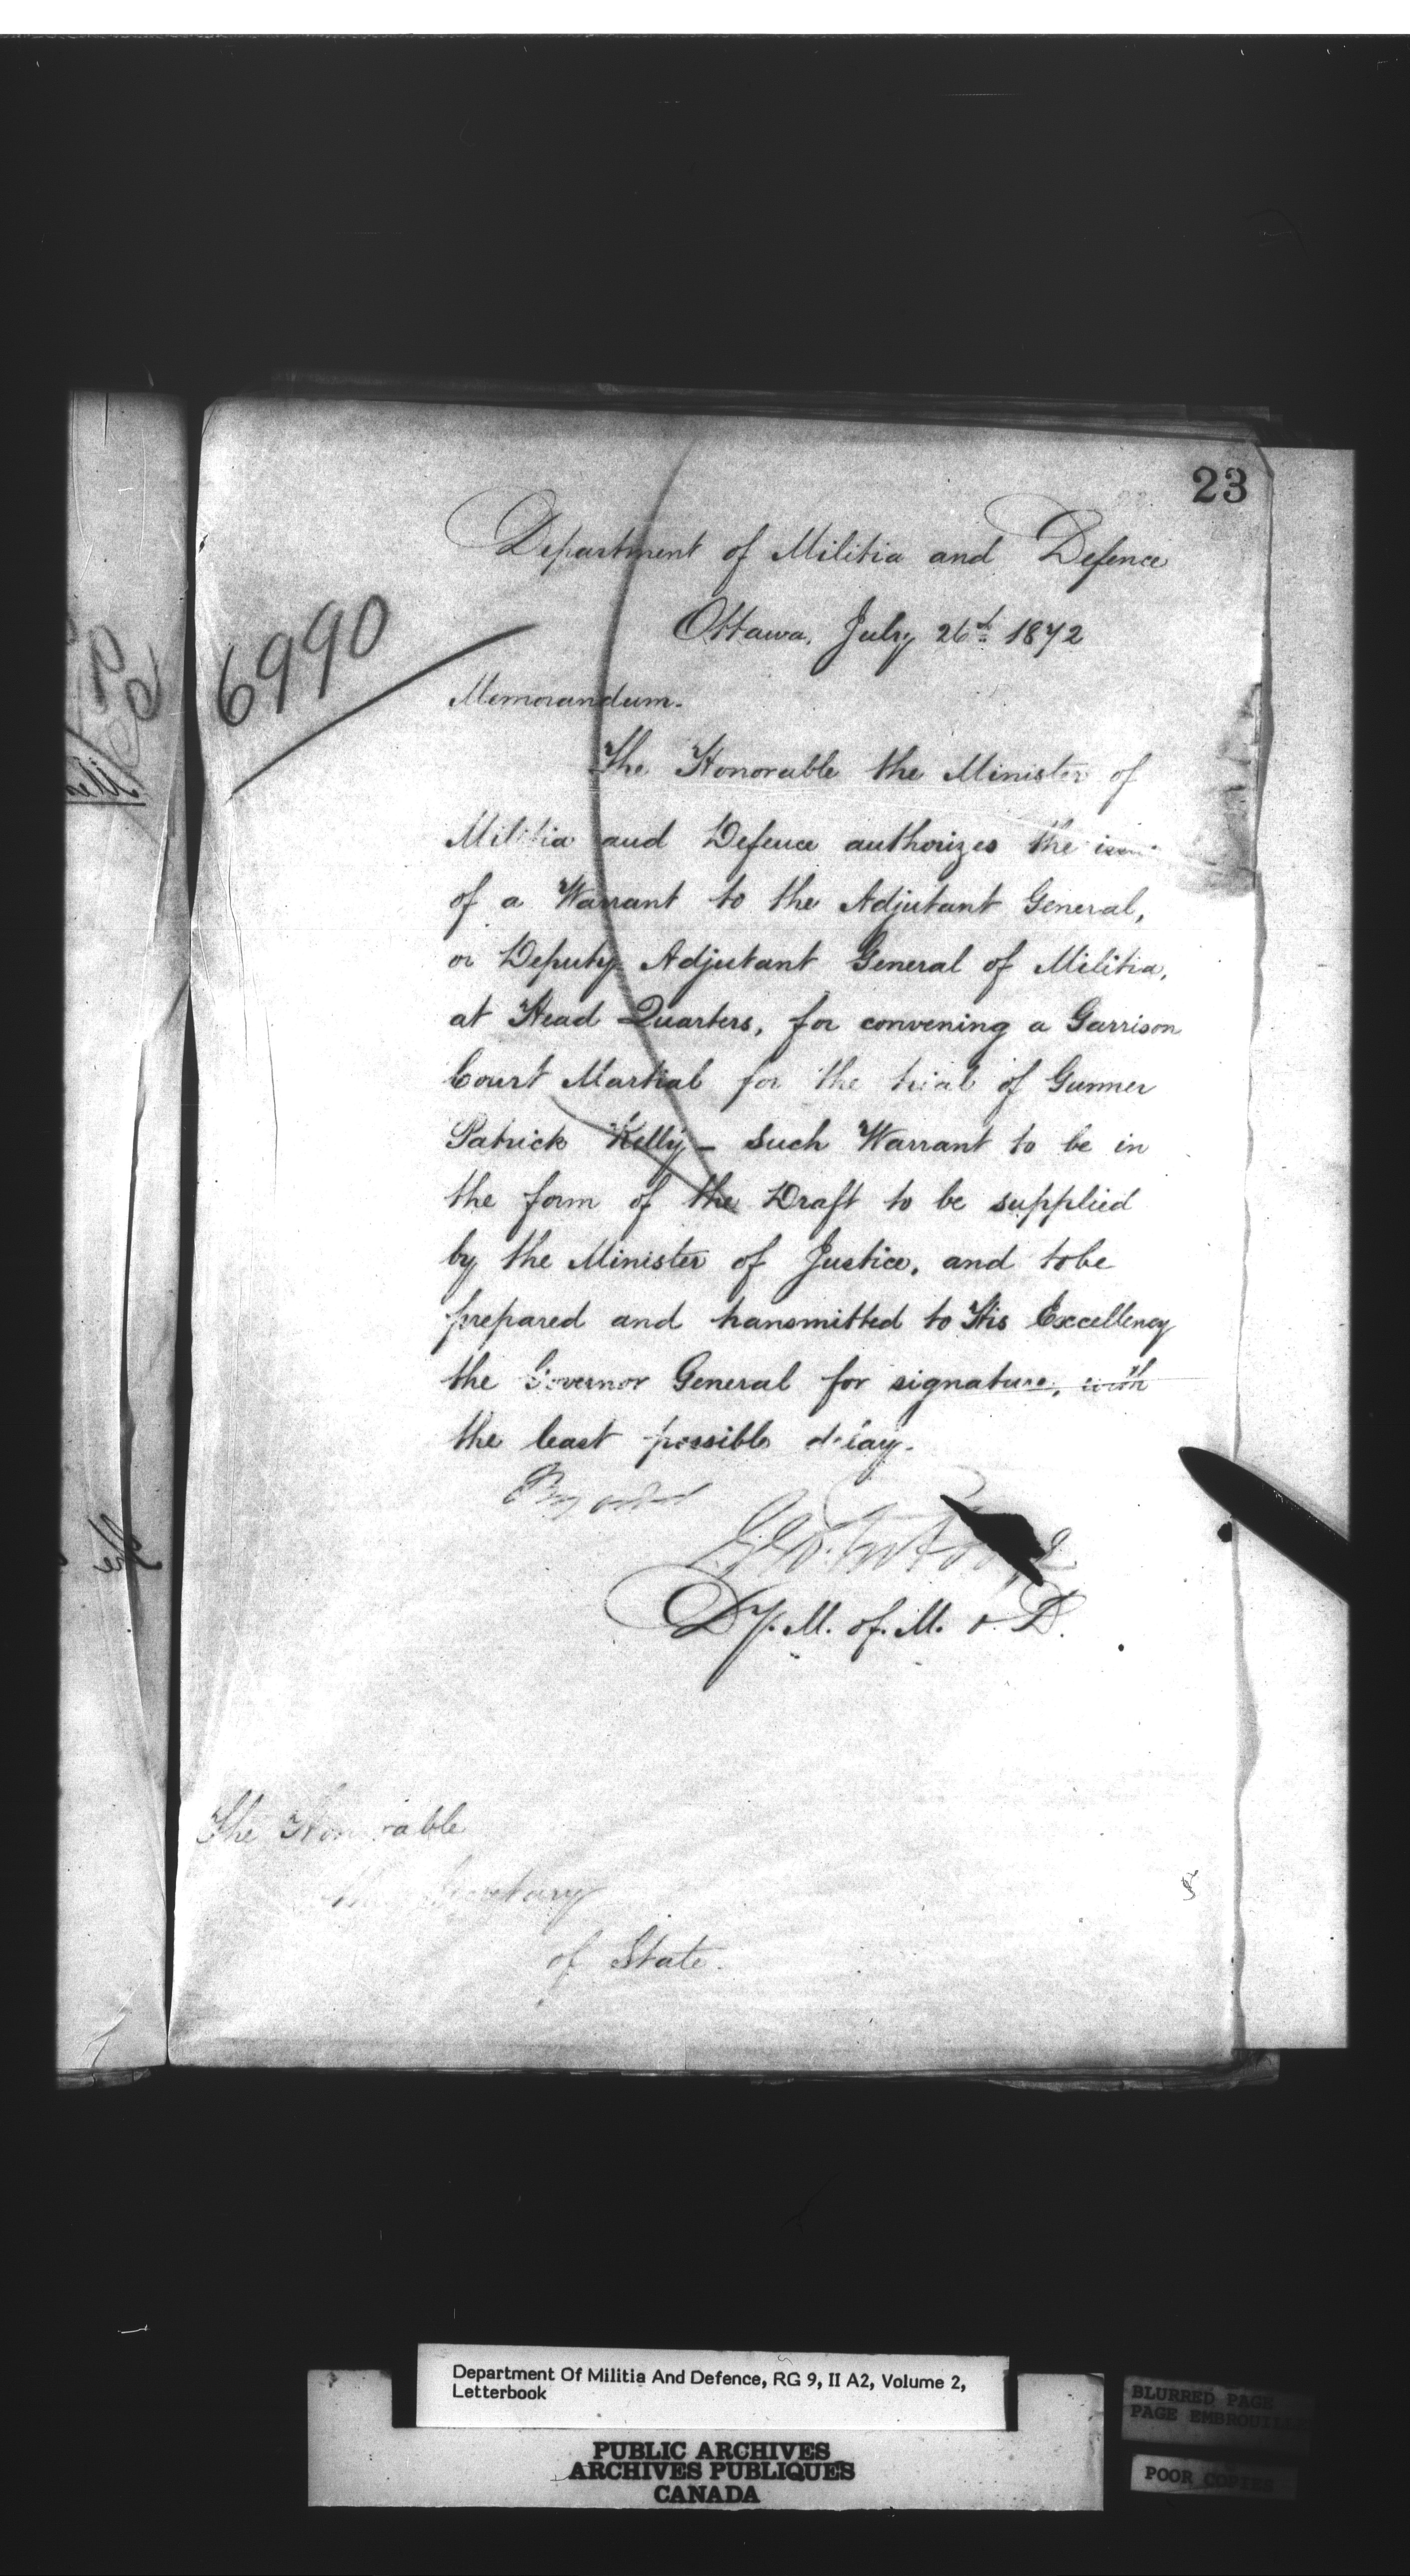 23
Department of Militia and Defence
Ottawa, July 26th 1872
6990
Memorandum.
The Honorable the Minister of
Militia and Defence authorizes the
of a Warrant to the Adjutant General,
or Deputy Adjutant General of Militia,
at Head Quarters, for convening a Garrison
Court Martial for the trial of Gunner
Patrick Kelly - such Warrant to be in
the form of the Draft to be supplied
by the Minister of Justice, and to be
prepared and transmitted to His Excellency
the Governor General for signature, with
the least possible delay.
Dy. M. of. M. & D.
The Honorable
The Secretary
of State.
Department Of Militia And Defence, RG 9, II A2, Volume 2,
Letterbook
PUBLIC ARCHIVES
ARCHIVES PUBLIQUES
CANADA
BLURRED PAGE
PAGE EMBROUILLEE
POOR COPIES